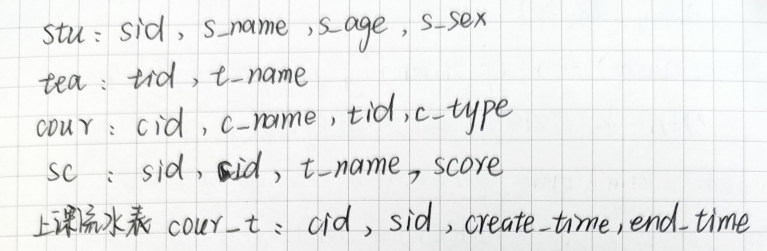 stu : sid , s_name , s_age , s_sex
tea : tid , t_name
cour : cid , c_name , tid , c_type
sc : sid , cid , t_name , score
上课流水表 cour_t : cid , sid , create_time , end_time